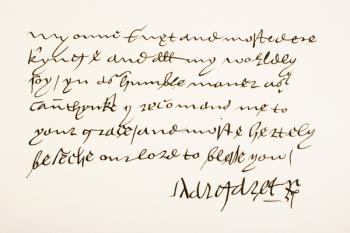 my oune suet and most dere
kynge and all my worldly
Joy / yn as humble maner as y
can thynke y recomand me to
your grace / and moste hertely
beseche our lord to blesse you /
Margaret R